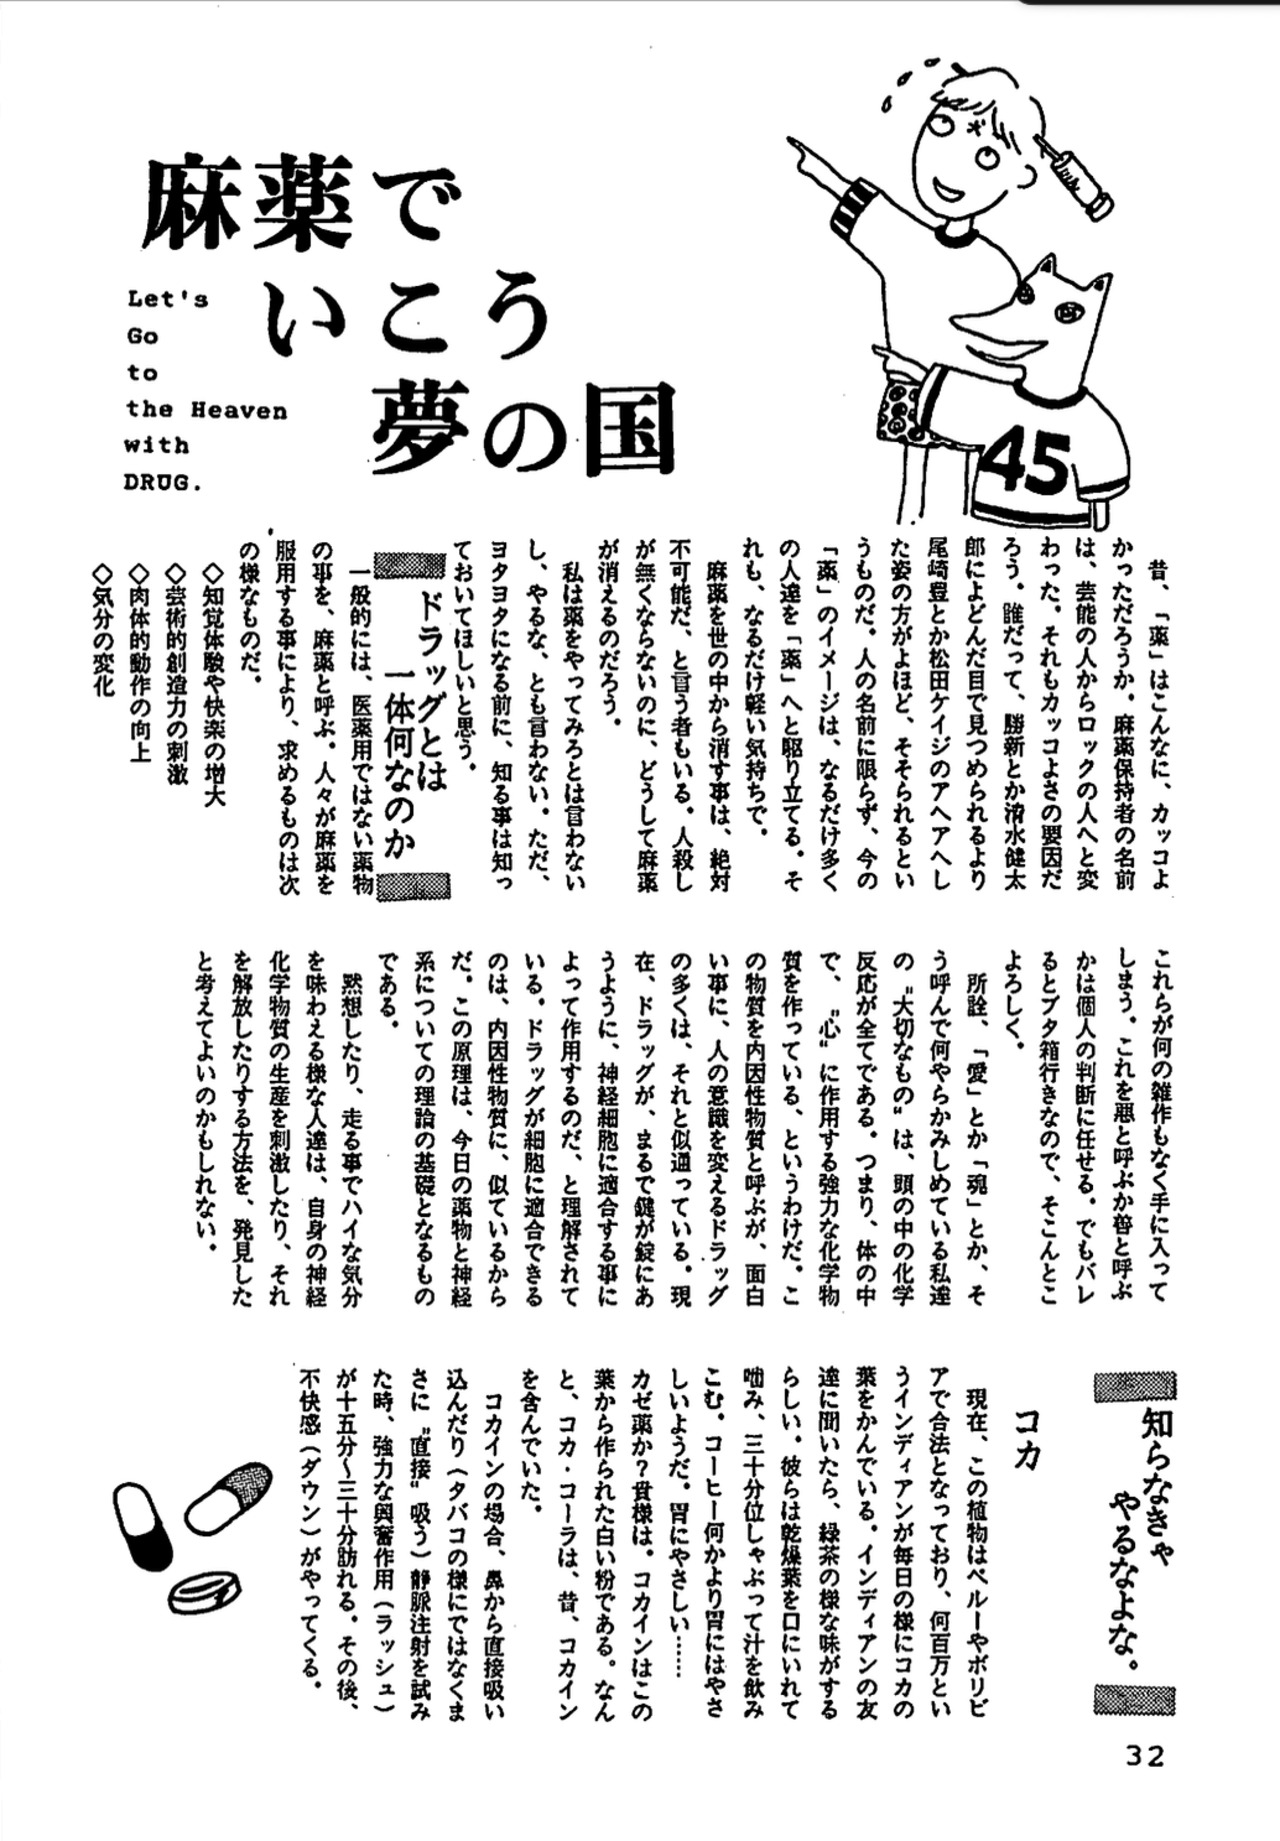 麻薬で
いこう
夢の国
Let's
Go
to
the Heaven
with
DRUG.
45
昔、「薬」はこんなに、カッコよ
かっただろうか。麻薬保持者の名前
は、芸能の人からロックの人へと変
わった。それもカッコよさの要因だ
ろう。誰だって、勝新とか清水健太
郎によどんだ目で見つめられるより
尾崎豊とか松田ケイジのアヘアヘし
た姿の方がよほど、そそられるとい
うものだ。人の名前に限らず、今の
「薬」のイメージは、なるだけ多く
の人達を「薬」へと駆り立てる。そ
れも、なるだけ軽い気持ちで。
麻薬を世の中から消す事は、絶対
不可能だ、と言う者もいる。人殺し
が無くならないのに、どうして麻薬
が消えるのだろう。
私は薬をやってみろとは言わない
し、やるな、とも言わない。ただ、
ヨタヨタになる前に、知る事は知っ
ておいてほしいと思う。
ドラッグとは
一体何なのか
一般的には、医薬用ではない薬物
の事を、麻薬と呼ぶ。人々が麻薬を
服用する事により、求めるものは次
の様なものだ。
◇知覚体験や快楽の増大
◇芸術的創造力の刺激
◇肉体的動作の向上
◇気分の変化
これらが何の雑作もなく手に入って
しまう。これを悪と呼ぶか善と呼ぶ
かは個人の判断に任せる。でもバレ
るとブタ箱行きなので、そこんとこ
よろしく。
所詮、「愛」とか「魂」とか、そ
う呼んで何やらかみしめている私達
の〝大切なもの〟は、頭の中の化学
反応が全てである。つまり、体の中
で、〝心〟に作用する強力な化学物
質を作っている、というわけだ。こ
の物質を内因性物質と呼ぶが、面白
い事に、人の意識を変えるドラッグ
の多くは、それと似通っている。現
在、ドラッグが、まるで鍵が錠にあ
うように、神経細胞に適合する事に
よって作用するのだ、と理解されて
いる。ドラッグが細胞に適合できる
のは、内因性物質に、似ているから
だ。この原理は、今日の薬物と神経
系についての理論の基礎となるもの
である。
黙想したり、走る事でハイな気分
を味わえる様な人達は、自身の神経
化学物質の生産を刺激したり、それ
を解放したりする方法を、発見した
と考えてよいのかもしれない。
知らなきゃ
やるなよな。
コカ
現在、この植物はペルーやボリビ
アで合法となっており、何百万とい
うインディアンが毎日の様にコカの
葉をかんでいる。インディアンの友
達に聞いたら、緑茶の様な味がする
らしい。彼らは乾燥葉を口にいれて
噛み、三十分位しゃぶって汁を飲み
こむ。コーヒー何かより胃にはやさ
しいようだ。胃にやさしい……
カゼ薬か?貴様は。コカインはこの
葉から作られた白い粉である。なん
と、コカ・コーラは、昔、コカイン
を含んでいた。
コカインの場合、鼻から直接吸い
込んだり(タバコの様にではなくま
さに〝直接〟吸う)静脈注射を試み
た時、強力な興奮作用(ラッシュ)
が十五分～三十分訪れる。その後、
不快感(ダウン)がやってくる。
32